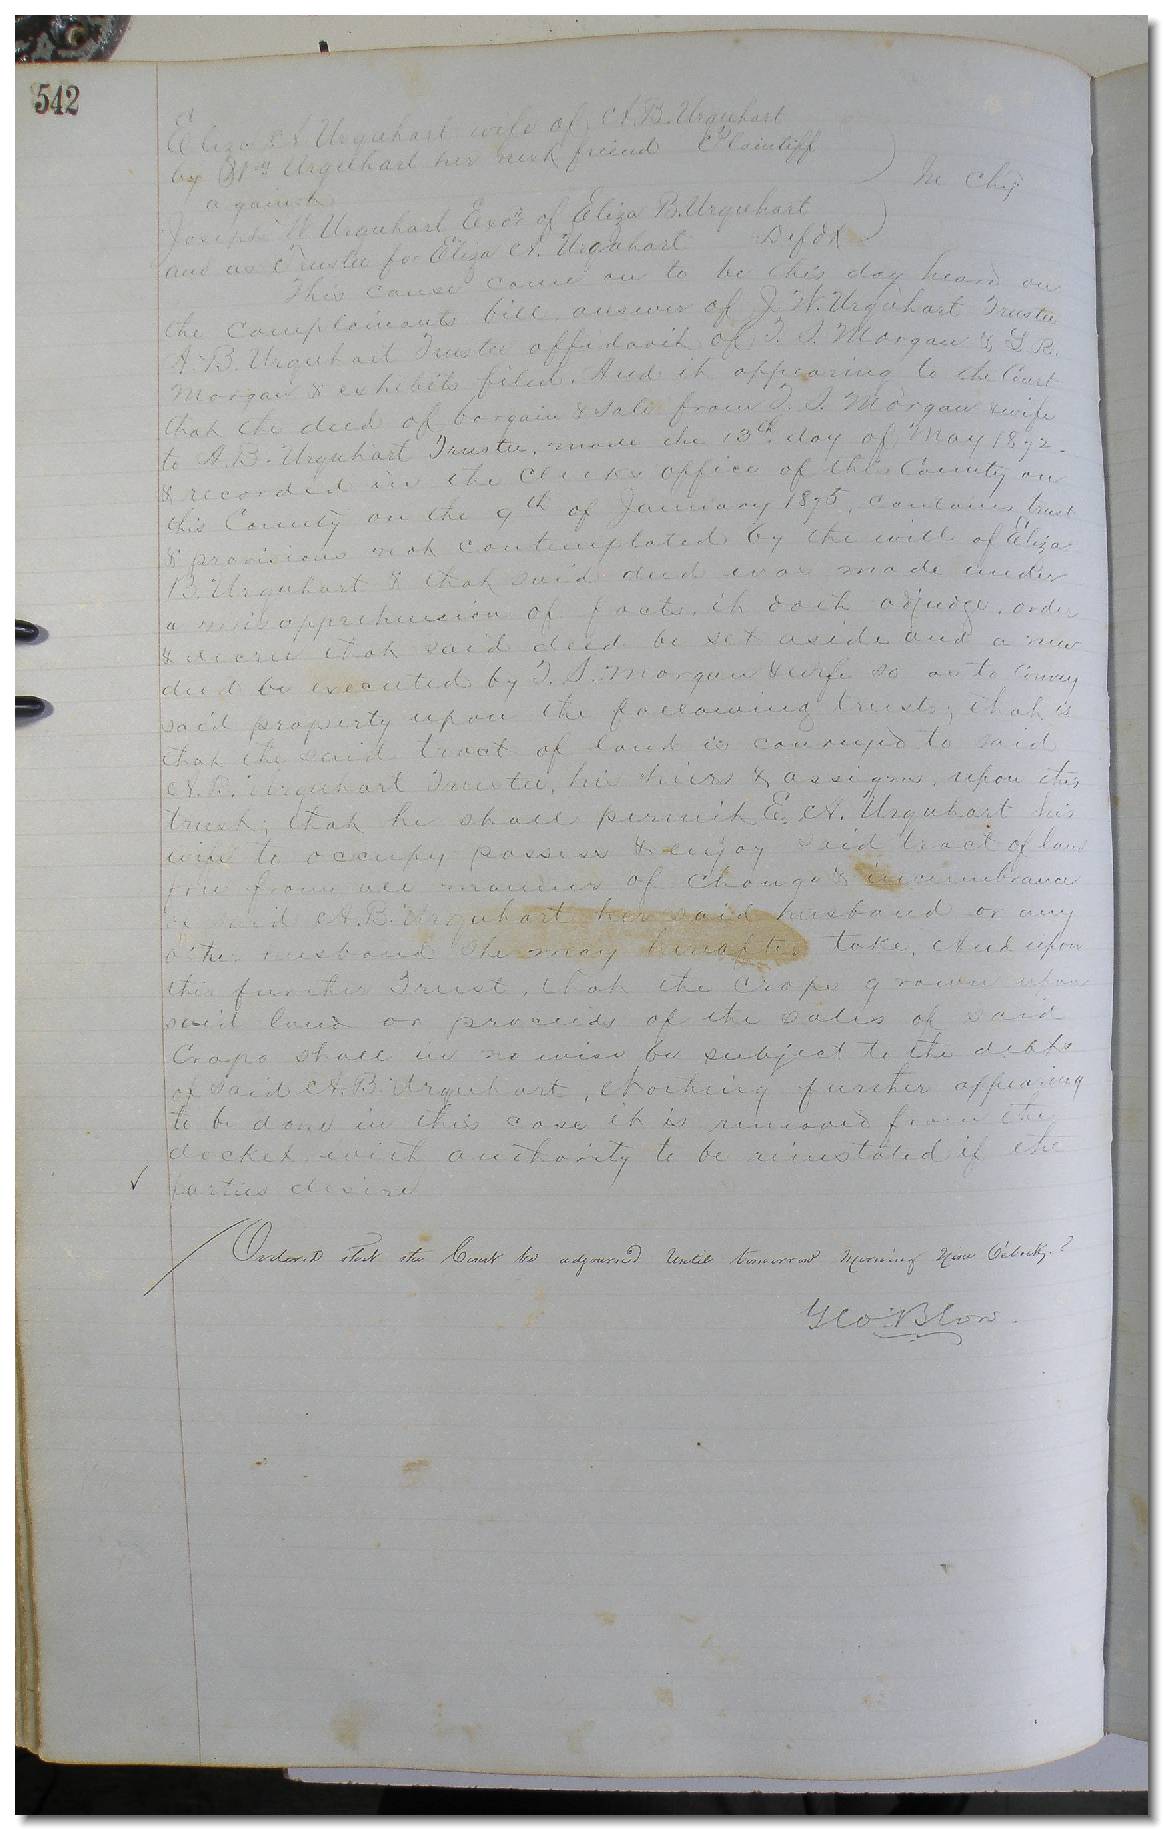 542
Eliza A Urquhart wife of A.B. Urquhart
by Urquhart her next friend Plaintiff
against
In Chy
Joseph W Urquhart Exor of Eliza B. Urquhart
and as Trustee for Eliza A. Urquhart Defdt
This cause came on to be this day heard on
the complainants bill, answer of J. W. Urquhart Trustee
A. B. Urquhart Trustee affidavit of T. J. Morgan & L. R.
Morgan & exhibits filed. And it appearing to the Court
that the deed of bargain & sale from T. J. Morgan & wife
to A. B. Urquhart Trustee, made the 13th day of May 1872.
& recorded in the Clerks office of this County on
this County on the 9th of January 1875, contains trust
& provisions not contemplated by the will of Eliza
B. Urquhart & that said deed was made under
a misapprehension of facts, it doth adjudge, order
& decree that said deed be set aside and a new
deed be executed by T. J. Morgan & wife so as to convey
said property upon the following trusts, that is
that the said tract of land is conveyed to said
A. B. Urquhart Trustee, his heirs & assigns, upon this
trust, that he shall permit E. A. Urquhart his
wife to occupy possess & enjoy said tract of land
free from all manner of charge & incumbrance
of said A. B. Urquhart her said husband or any
other husband she may hereafter take. And upon
this further Trust, that the crops grown upon
said land or proceeds of the sales of said
Crops shall in no wise be subject to the debts
of said A. B. Urquhart, Nothing further appearing
to be done in this case it is removed from the
docket with authority to be reinstated if the
parties desire
Ordered that the Court be adjourned until tomorrow morning Nine O'clock.
Geo. Blow.